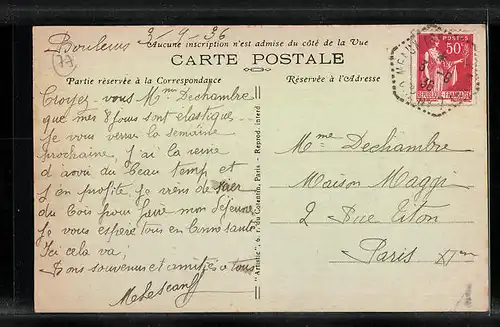 Bouleurs 3-9-36
77
Aucune inscription n'est admise du côté de la Vue
CARTE POSTALE
Partie réservée à la Correspondance
Réservée à l'Adresse
Croyez-vous Mme Dechambre
que mes 8 jours sont élastique
je vous verrai la semaine
prochaine, j'ai la veine
d'avoir du beau temp et
j'en profite je viens de scier
du bois pour faire mon déjeuner
Je vous espère tous en bonne santé
Ici cela va,
Bons souvenirs et amitiés a tous
"Artistic" 6, r. du Cotentin, Paris. - Reprod. interd.
POSTES
50c
REPUBLIQUE FRANÇAISE
Mme Dechambre
Maison Maggi
2 Rue Titon
Paris XIme